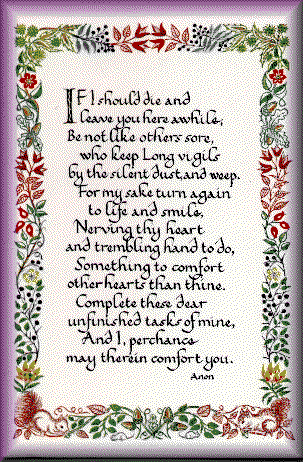 IF I should die and
leave you here awhile,
Be not like others sore,
who keep Long vigils
by the silent dust, and weep.
For my sake turn again
to life and smile,
Nerving thy heart
and trembling hand to do,
Something to comfort
other hearts than thine.
Complete these dear
unfinished tasks of mine,
And I, perchance
may therein comfort you.
Anon